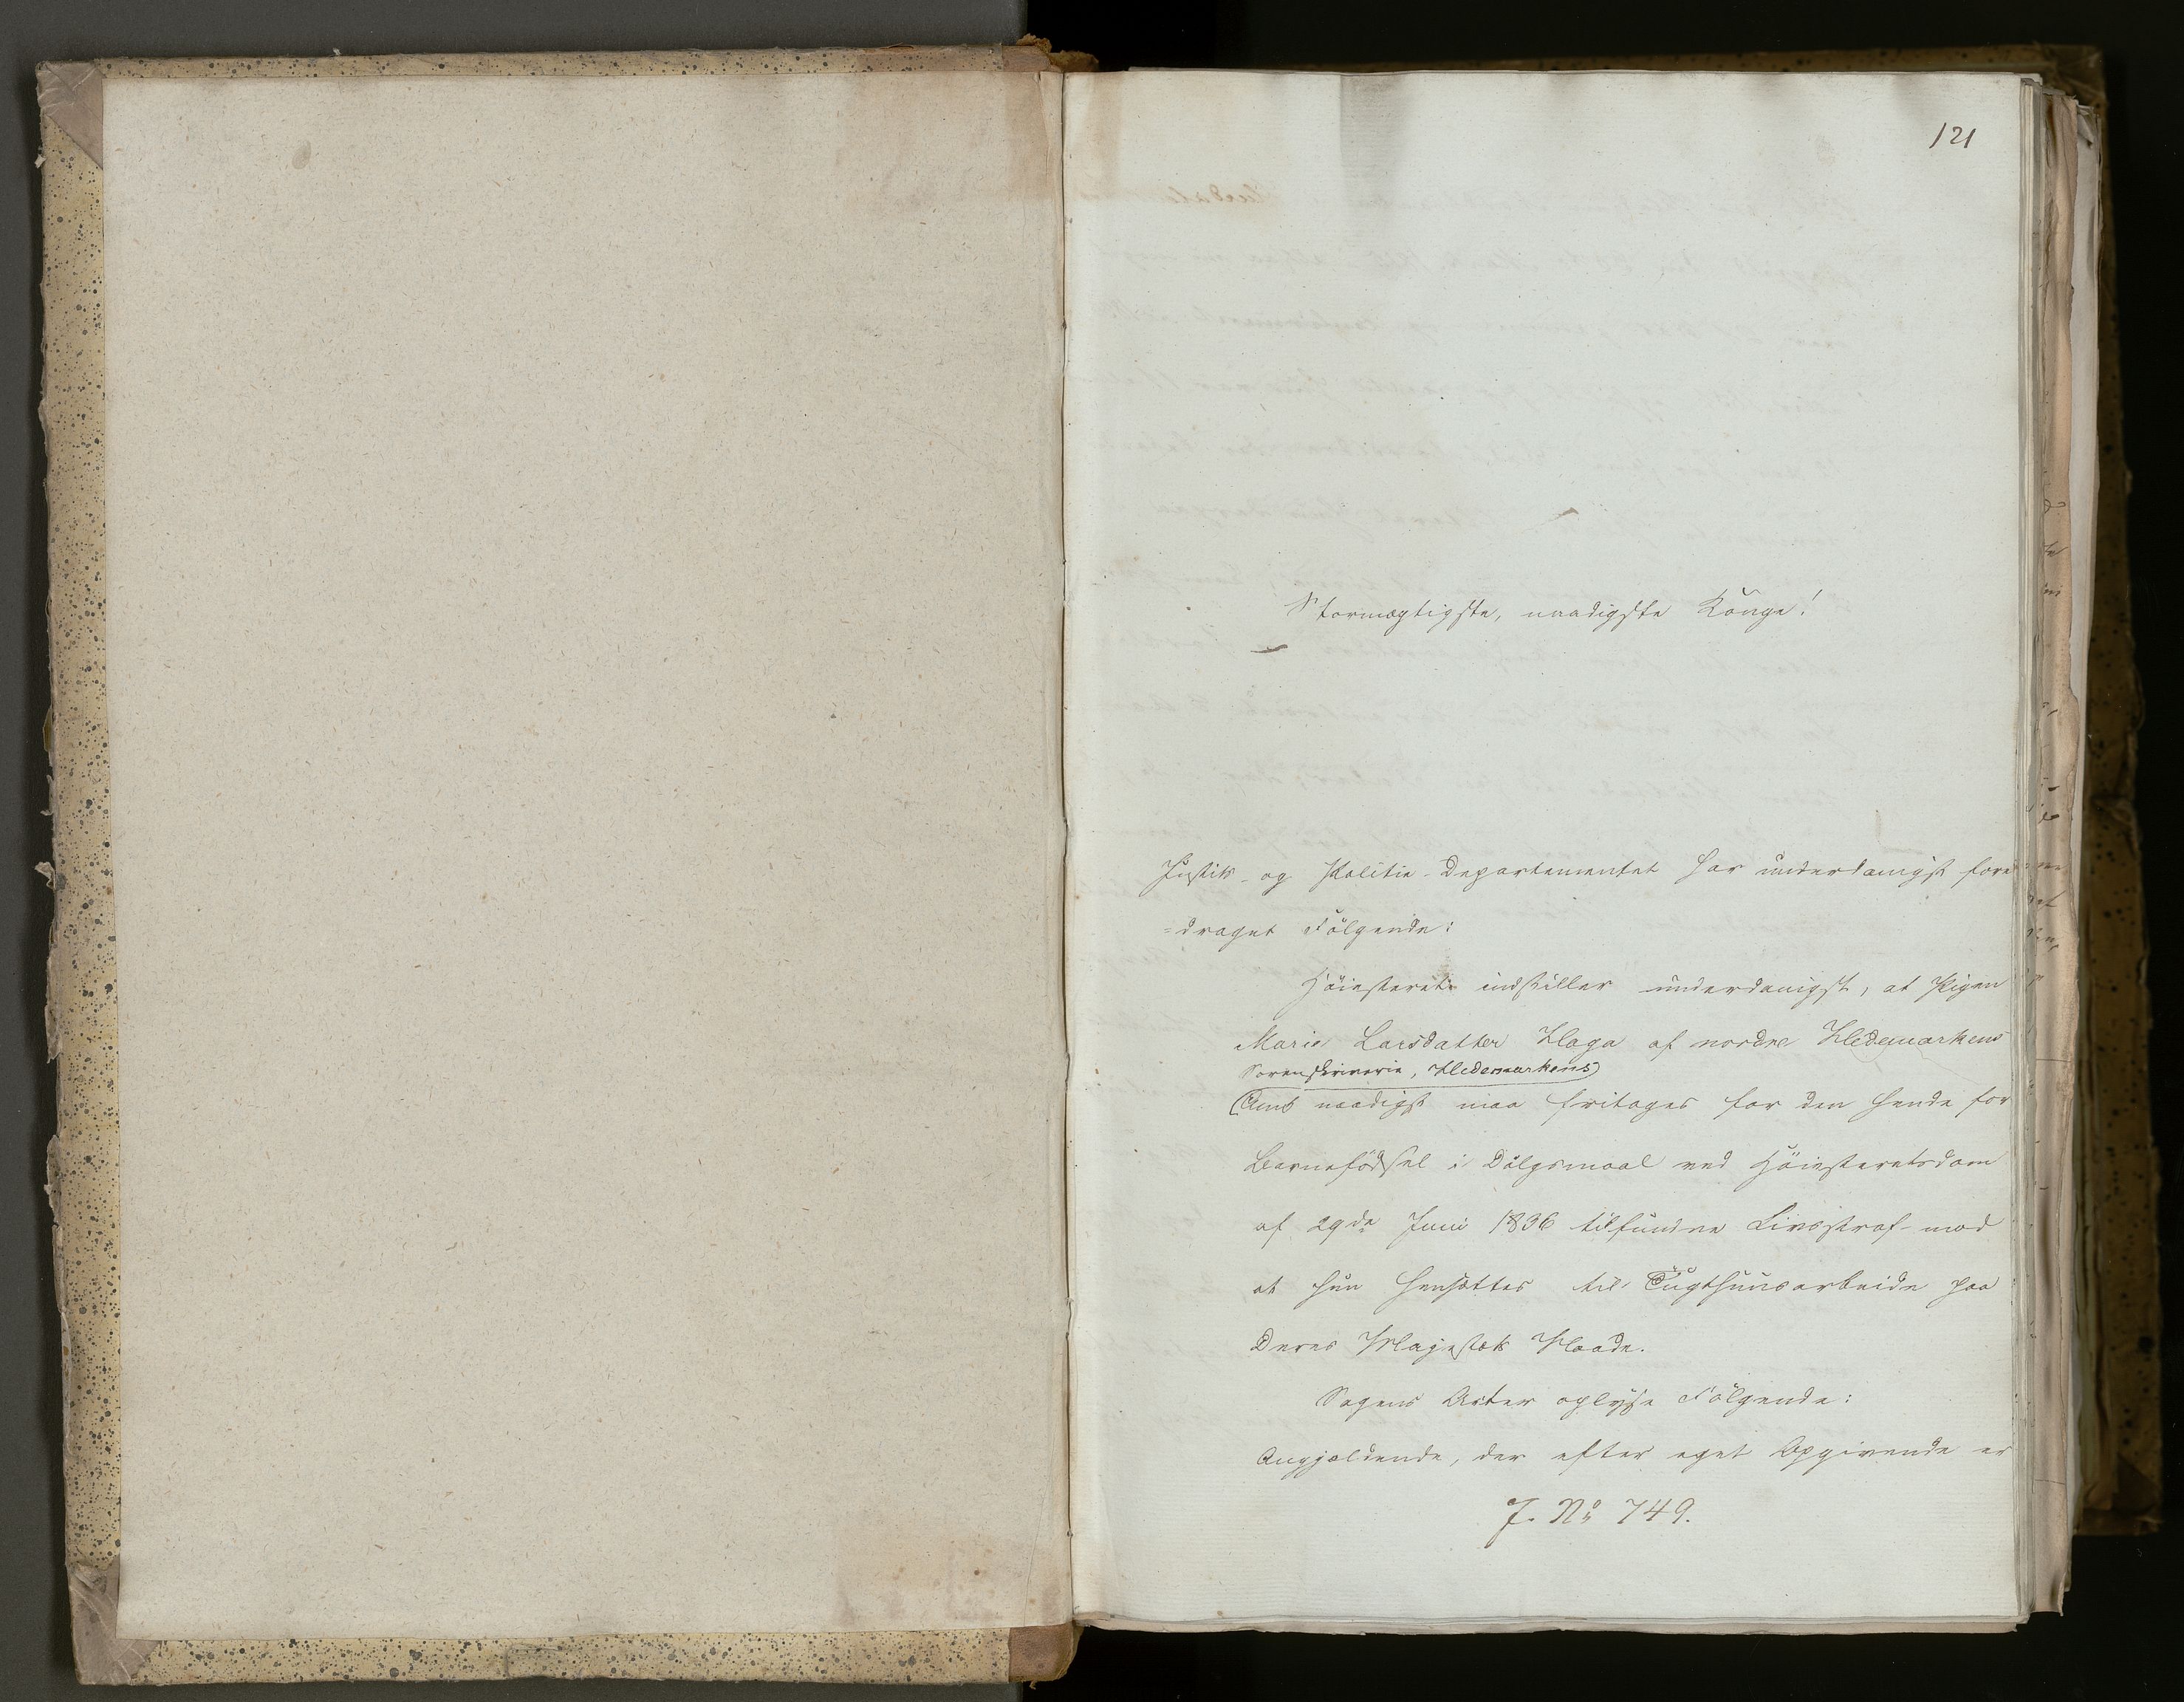 121
Stormægtigste, naadigste Konge!
Justits- og Politie-Departementet har underdanigst fore
=draget Følgende:
Høiesteret indstiller underdanigst, at Pigen
Marie Larsdatter Haga af nordre Hedemarkens
Sorenskriverie, Hedemarkens
Amt naadigst maa fritages for den hende for
Barnefødsel i Dølgsmaal ved Høiesteretsdom
af 29de Juni 1836 tilfundne Livsstraf mod
at hun hensættes til Tugthuusarbeide paa
Deres Majestæts Naade.
Sagens Acter oplyse Følgende:
Angjældende, der efter eget Opgivende er
J. No 749.